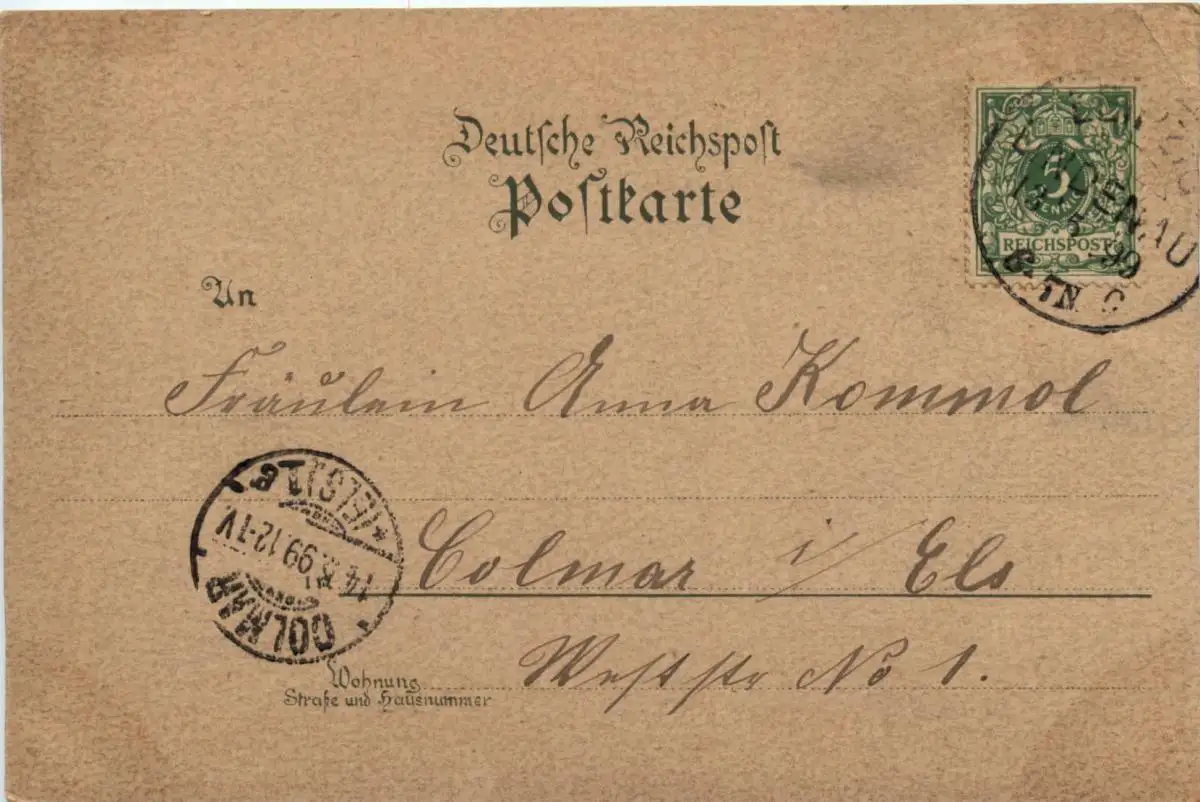 Deutsche Reichspost
Postkarte
5
PFENNIG
REICHSPOST
13 5 99
6-7N
An
Fräulein Anna Kommol
(ELS)
14.5.99.12-1V.
COLMAR
Colmar i/ Els
Weststr No 1.
Wohnung
Straße und Hausnummer